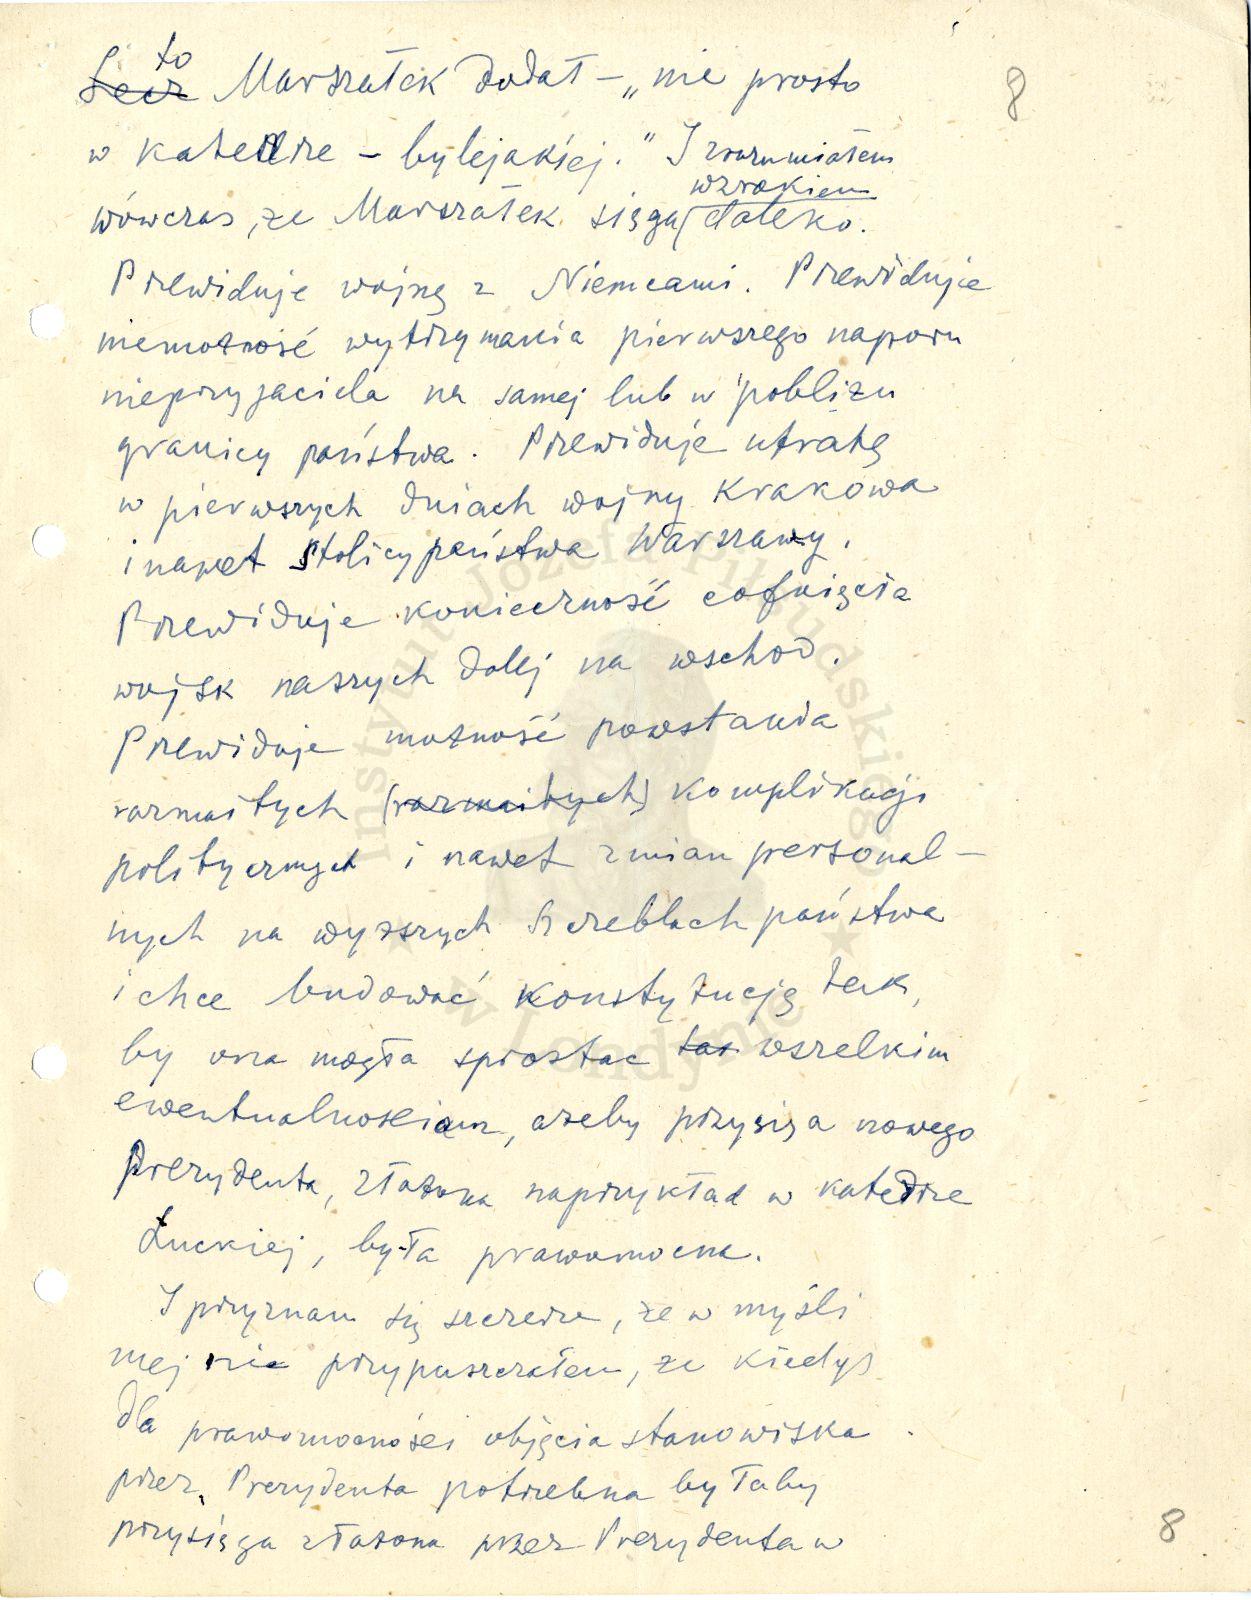 to
Lecz Marszałek dodał – „nie prosto
8
w katedrze – bylejakiej." I zrozumiałem
wzrokiem
wówczas, że Marszałek sięga daleko.
Przewiduje wojnę z Niemcami. Przewiduje
niemożność wytrzymania pierwszego naporu
nieprzyjaciela na samej lub w pobliżu
granicy państwa. Przewiduje utratę
w pierwszych dniach wojny Krakowa
i nawet Stolicy państwa Warszawy.
Przewiduje konieczność cofnięcia
wojsk naszych dalej na wschód.
Przewiduje możność powstania
rozmaitych (rozmaitych) komplikacji
politycznych i nawet zmian personal–
nych na wyższych szczeblach państwa
i chce budować Konstytucję tak,
by ona mogła sprostac wszelkim
ewentualnosciom, ażeby przysięga nowego
Prezydenta, złożona naprzykład w katedrze
Łuckiej, była prawomocna.
I przyznam się szczerze, że w myśli
mej nie przypuszczałem, że kiedyś
dla prawomocności objęcia stanowiska
przez Prezydenta potrzebna byłaby
przysięga złożona przez Prezydenta w
8
Instytut Józefa Piłsudskiego
w Londynie